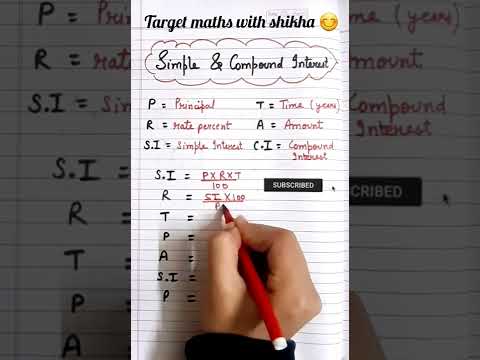 Target maths with shikha 😊
Simple & Compound Interest
P = Principal T = Time (years)
R = rate percent A = Amount
S.I = Simple Interest C.I = Compound Interest
S.I = P×R×T
100
SUBSCRIBED
R = SI×100
P
T =
P =
A =
S.I =
P =